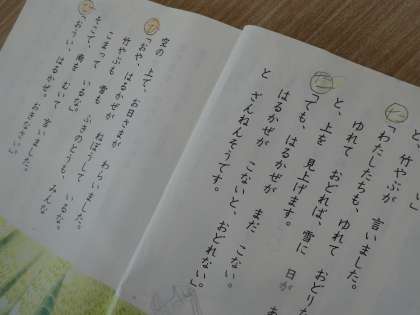 、
と、竹やぶが 言いました。
「わたしたちも、ゆれて おどりた
と、上を 見上げます。
「でも、はるかぜが まだ こない。
はるかぜが こないと、おどれない。」
と ざんねんそうです。
空の 上で、お日さまが わらいました。
「おや、はるかぜが ねぼうして いるな。
竹やぶも 雪も ふきのとうも、みんな
こまって いるな。」
そこで、南を むいて 言いました。
「おうい、はるかぜ。おきなさい。」